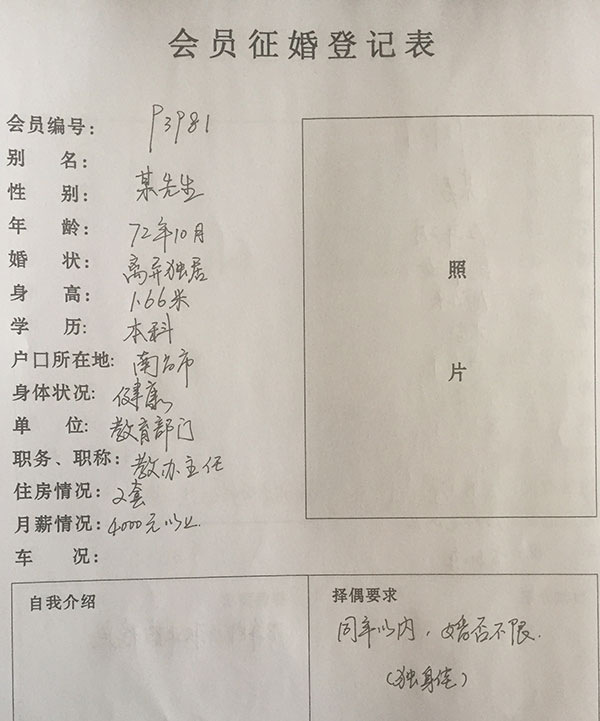 会员征婚登记表
会员编号: P3981
别 名:
性 别: 某先生
年 龄: 72年10月
婚 状: 离异独居
身 高: 1.66米
学 历: 本科
户口所在地: 南昌市
身体状况: 健康
单 位: 教育部门
职务、职称: 教办主任
住房情况: 2套
月薪情况: 4000元以上
车 况:
照
片
自我介绍
择偶要求
同年以内，婚否不限.
(独身佳)